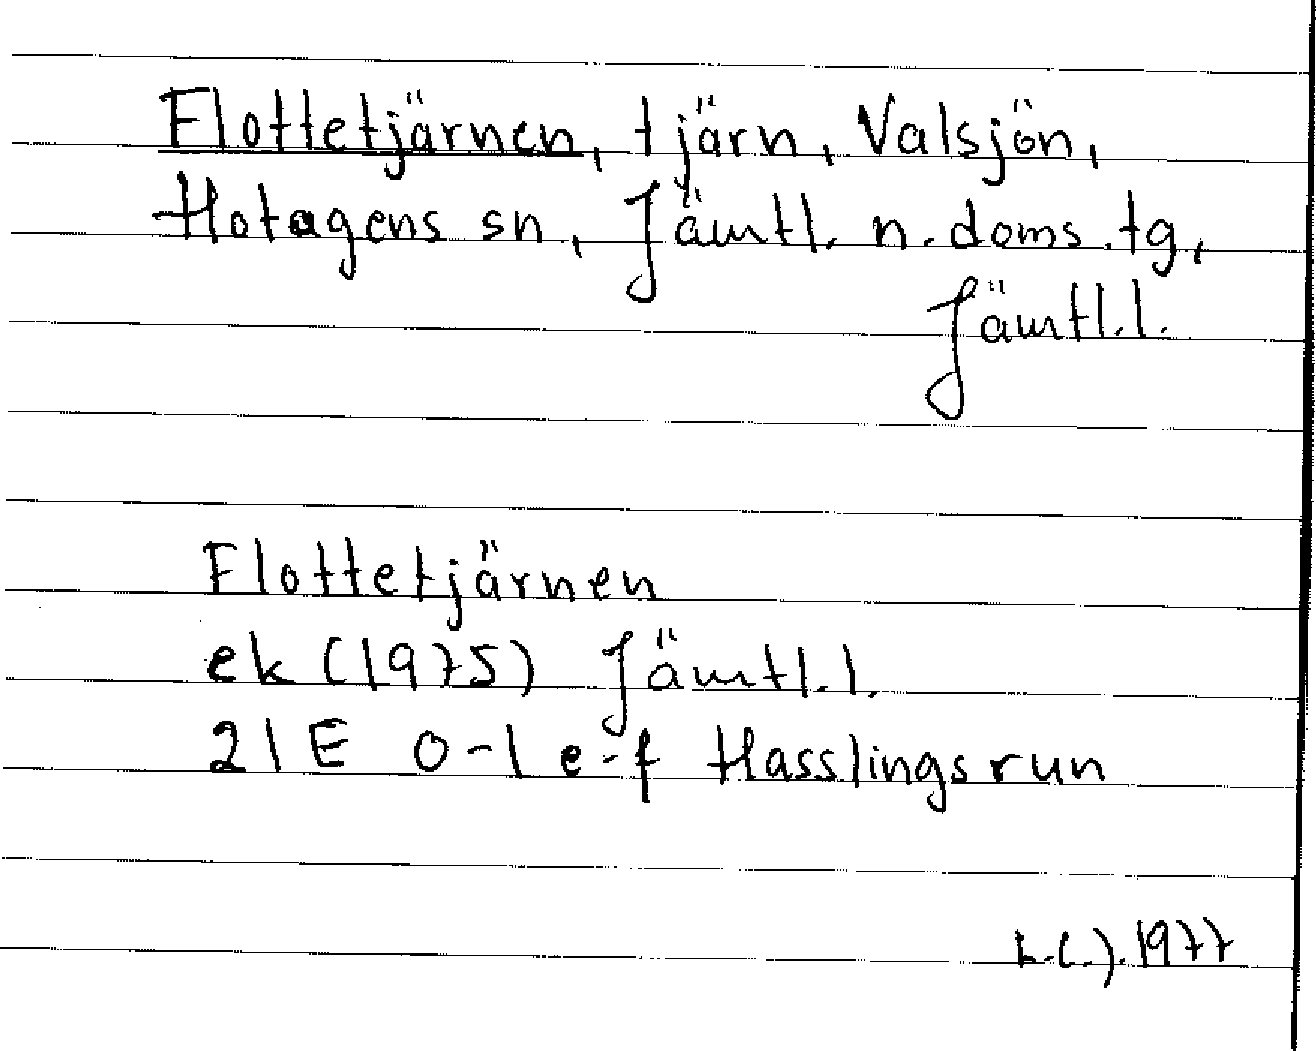 Flottetjärnen, tjärn, Valsjön,
Hotagens sn, Jämtl. n. doms. tg,
Jämtl.l.
Flottetjärnen
ek (1975) Jämtl.l.
21E 0-1 e-f Hasslingsrun
1977